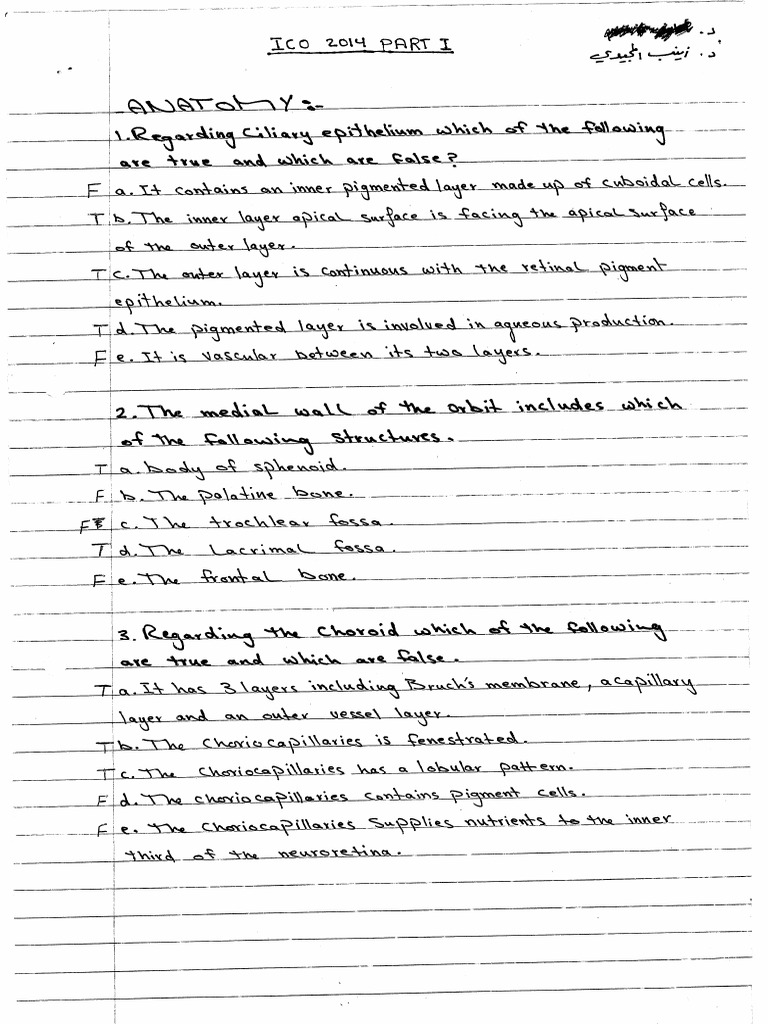 ICO 2014 PART I
د.
د. زينب المجيدي
ANATOMY:-
1. Regarding Ciliary epithelium which of the following
are true and which are false?
F a. It contains an inner pigmented layer made up of cuboidal cells.
T b. The inner layer apical surface is facing the apical surface
of the outer layer.
T c. The outer layer is continuous with the retinal pigment
epithelium.
T d. The pigmented layer is involved in aqueous production.
F e. It is vascular between its two layers.
2. The medial wall of the orbit includes which
of the following structures.
T a. body of sphenoid.
F b. The palatine bone.
F c. The trochlear fossa.
T d. The Lacrimal fossa.
F e. The frontal bone.
3. Regarding the Choroid which of the following
are true and which are false.
T a. It has 3 layers including Bruch's membrane, a capillary
layer and an outer vessel layer.
T b. The Choriocapillaries is fenestrated.
T c. The Choriocapillaries has a lobular pattern.
F d. The choriocapillaries contains pigment cells.
F e. The Choriocapillaries Supplies nutrients to the inner
third of the neuroretina.